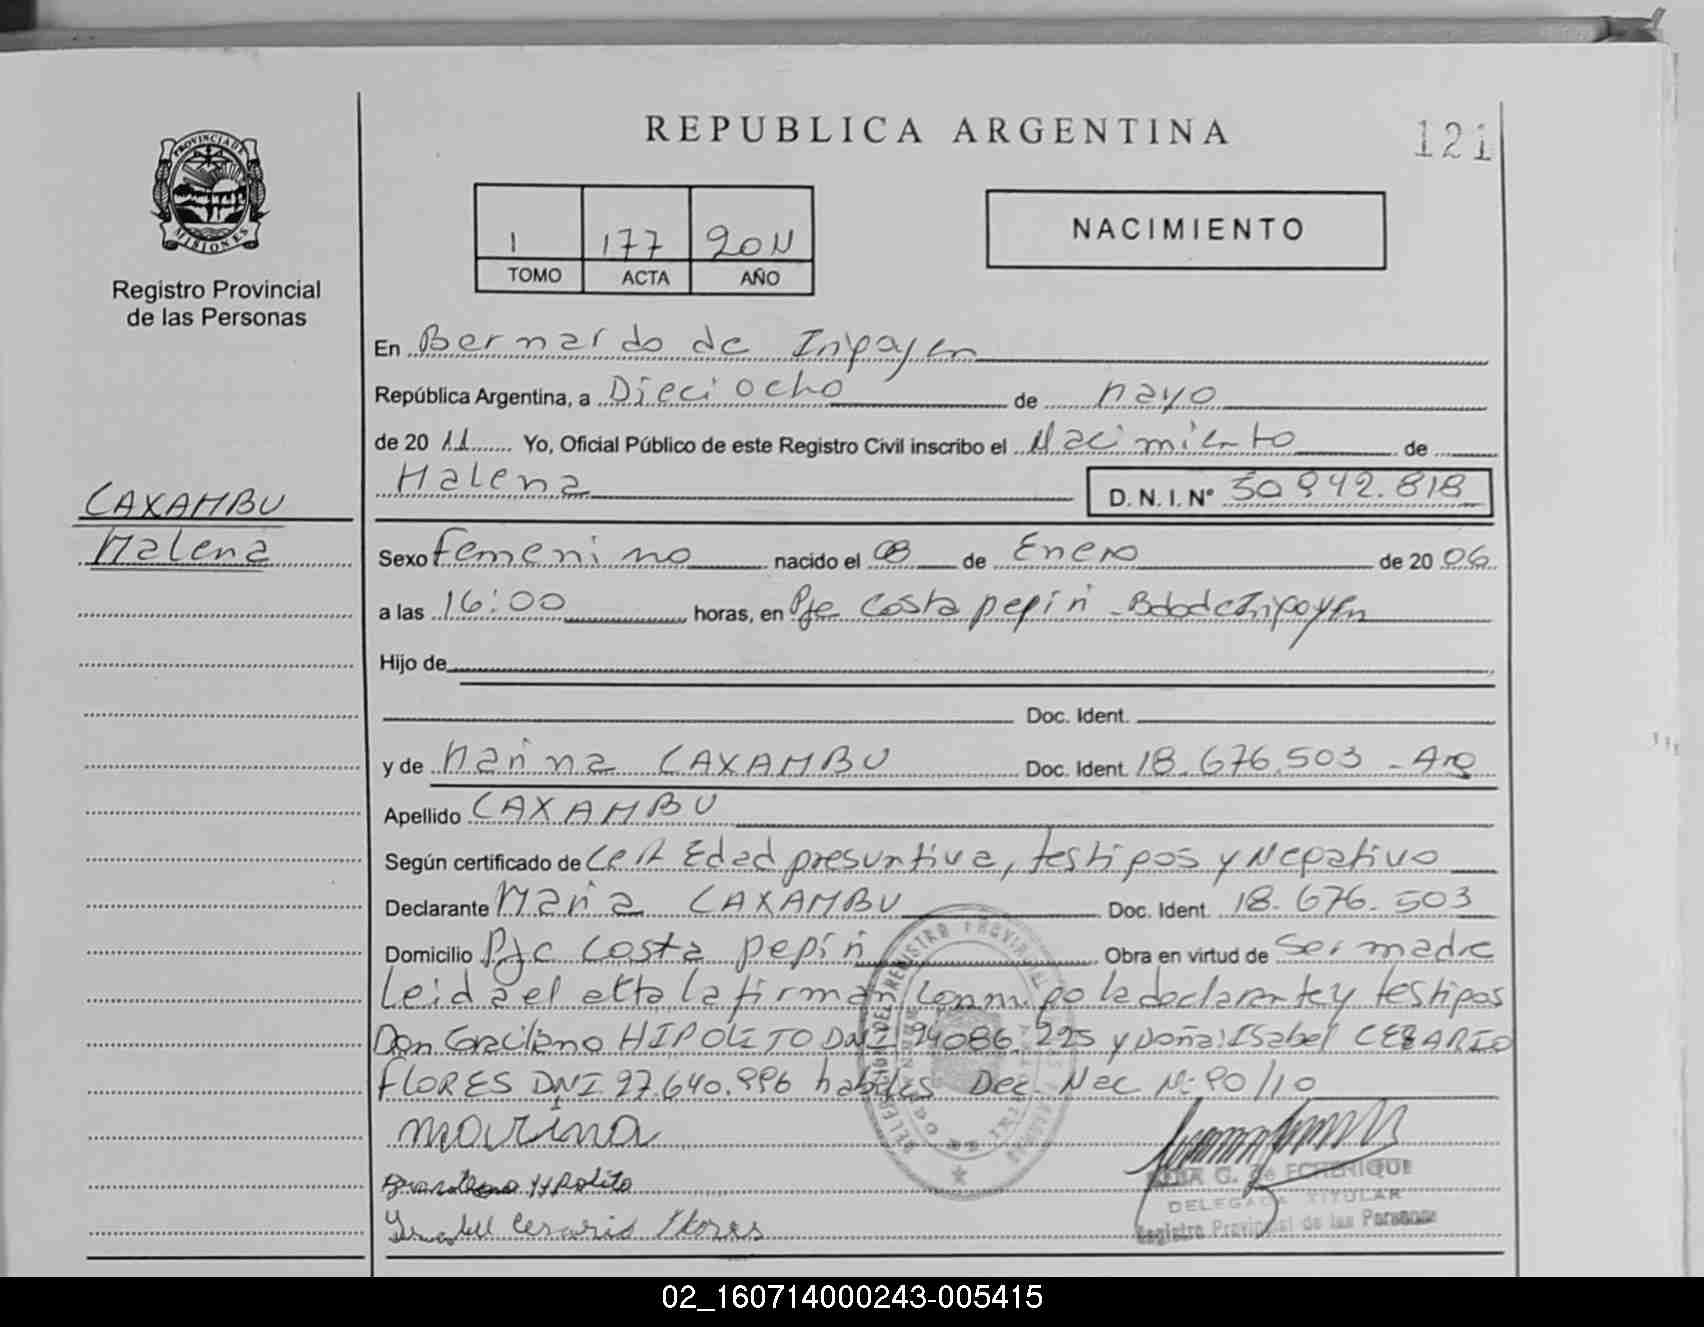 REPUBLICA ARGENTINA
121
PROVINCIA DE MISIONES
Registro Provincial
de las Personas
1 177 2011
TOMO ACTA AÑO
NACIMIENTO
En Bernardo de Iripoyen
República Argentina, a Dieciocho de Mayo
de 20 11 Yo, Oficial Público de este Registro Civil inscribo el Nacimiento de
Malena D. N. I. N° 50 942.818
CAXAMBU
Malena
Sexo Femenino nacido el 08 de Enero de 20 06
a las 16:00 horas, en Pje Costa pepiri - Bdo de Iripoyen
Hijo de
Doc. Ident.
y de Marina CAXAMBU Doc. Ident. 18.676.503 - Arg
Apellido CAXAMBU
Según certificado de Cert Edad presuntiva, testipos y Nepativo
Declarante Maria CAXAMBU Doc. Ident. 18.676.503
Domicilio Pje Costa pepiri Obra en virtud de Ser madre
Leida el acta la firman conmipo la declarante y testipos
Don Graciliano HIPOLITO DNI 94086.225 y Doña: Isabel CEZARIO
FLORES DNI 27.640.996 habiles Dec. Nac N: 90/10
marina
Hypolito
Isabel Cesario Flores
G. de ECHENIQUE
DELEGADA TITULAR
Registro Provincial de las Personas
02_160714000243-005415